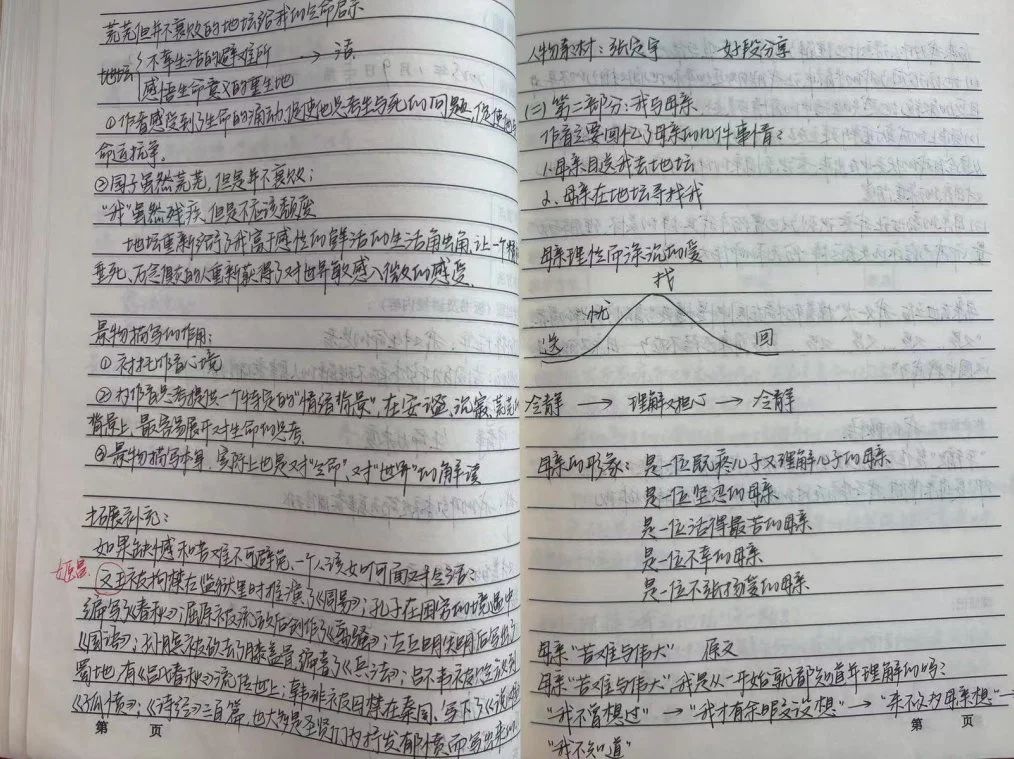 荒芜但并不衰败的地坛给我的生命启示
地坛 不幸生活的避难所 → 活
感悟生命意义的重生地
①作者感受到了生命的涌动,促使他思考生与死的问题,促使他与
命运抗争。
②园子虽然荒芜,但是并不衰败;
"我"虽然残疾,但是不应该颓废
地坛重新活了我富于感性的鲜活的生活角出角,让一个
垂死、万念俱灰的人重新获得了对世界敏感入微的感受。
景物描写的作用:
①衬托作者心境
②为作者思考提供一个特定的"情绪背景",在安谧、沉寂、荒芜的
背景上,最容易展开对生命的思考。
③景物描写本身,实际上也是对"生命"、对"世界"的解读
拓展补充:
如果缺憾和苦难不可避免,一个人该如何面对生活?
姬昌.
文王被拘禁在监狱里时推演了《周易》;孔子在困穷的境遇中
编写《春秋》;屈原被流放后创作了《离骚》;左丘明失明后写出了
《国语》;孙膑被砍去了膝盖骨,编著了《兵法》;吕不韦被贬放到
蜀地,有《吕氏春秋》流传世上;韩非被囚禁在秦国,写下了《说难》
《孤愤》;《诗经》三百篇,也大多是圣贤们为抒发郁愤而写出来的
第 页
人物素材:张定宇 好段分享
(二)第二部分:我与母亲
作者主要回忆了母亲的几件事情?
1.母亲目送我去地坛
2.母亲在地坛寻找我
母亲理性而深沉的爱
找
忧
送 回
冷静 → 理解又担心 → 冷静
母亲的形象:是一位既疼儿子又理解儿子的母亲
是一位坚忍的母亲
是一位活得最苦的母亲
是一位不幸的母亲
是一位不张扬爱的母亲
母亲"苦难与伟大" 原文
母亲"苦难与伟大"我是从一开始就都能理解的吗?
"我不曾想过"→"我才有余暇设想"→"来不及为母亲想"→
"我不知道"
第 页